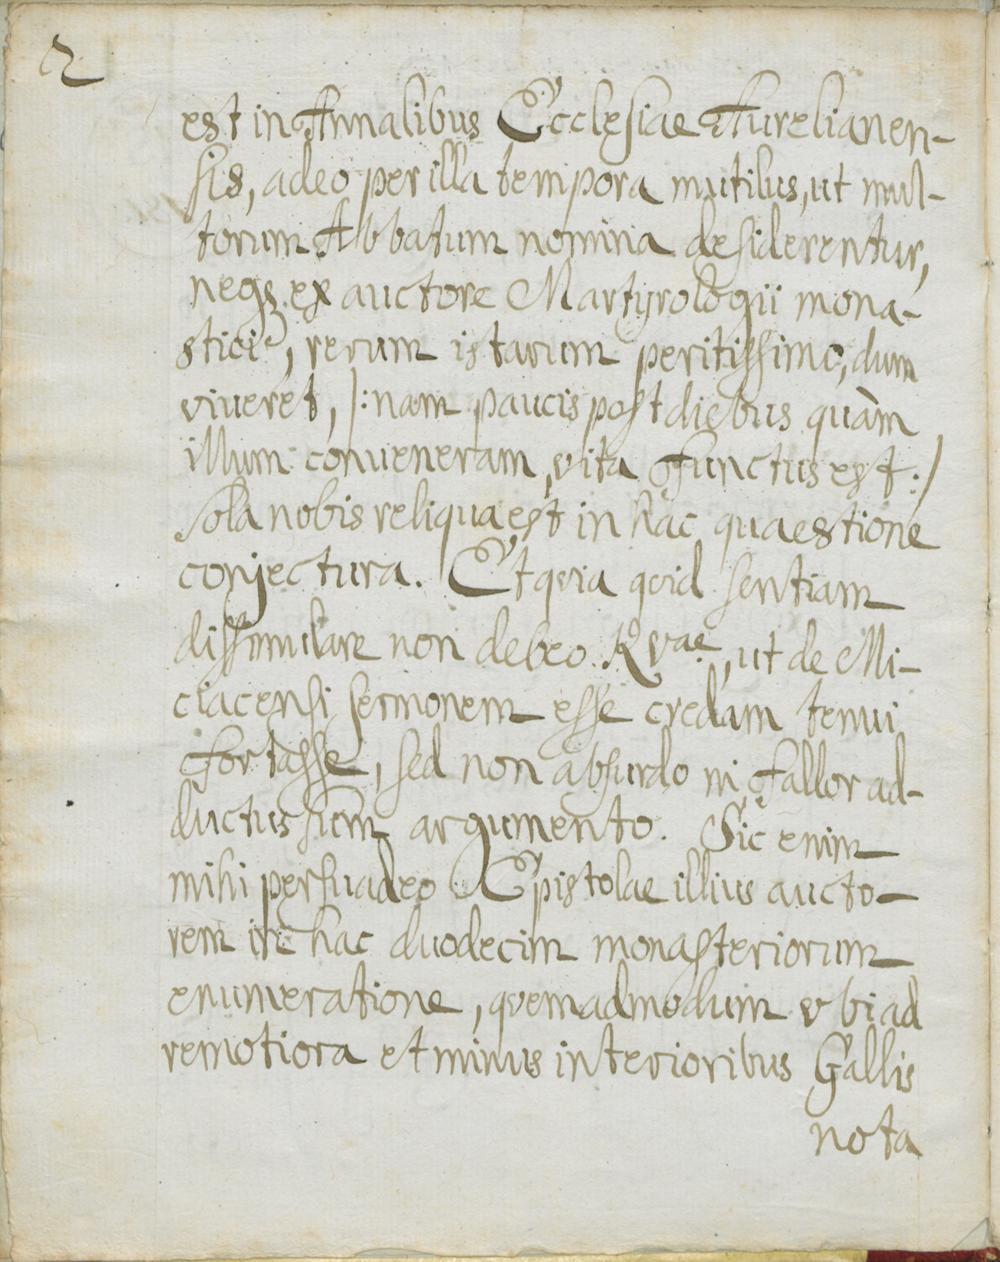 2
est in Annalibus Ecclesiae Aurelianen-
sis, adeo per illa tempora mutilus, ut mul-
torum Abbatum nomina desiderentur,
neqз ex auctore Martyrologii mona-
stici, rerum istarum peritissimo, dum
viveret, /: nam paucis post diebus quàm
illum conveneram, vita functus est :/
sola nobis reliqua est in hac quaestione
conjectura. Et qvia qvid sentiam
dissimulare non debeo Rvae, ut de Mi-
ciacensi sermonem esse credam tenui
fortasse, sed non absurdo ni fallor ad-
ductus sum argumento. Sic enim
mihi persuadeo Epistolae illius aucto-
rem in hac duodecim monasteriorum
enumeratione, qvemadmodum vbi ad
remotiora et minus interioribus Gallis
nota